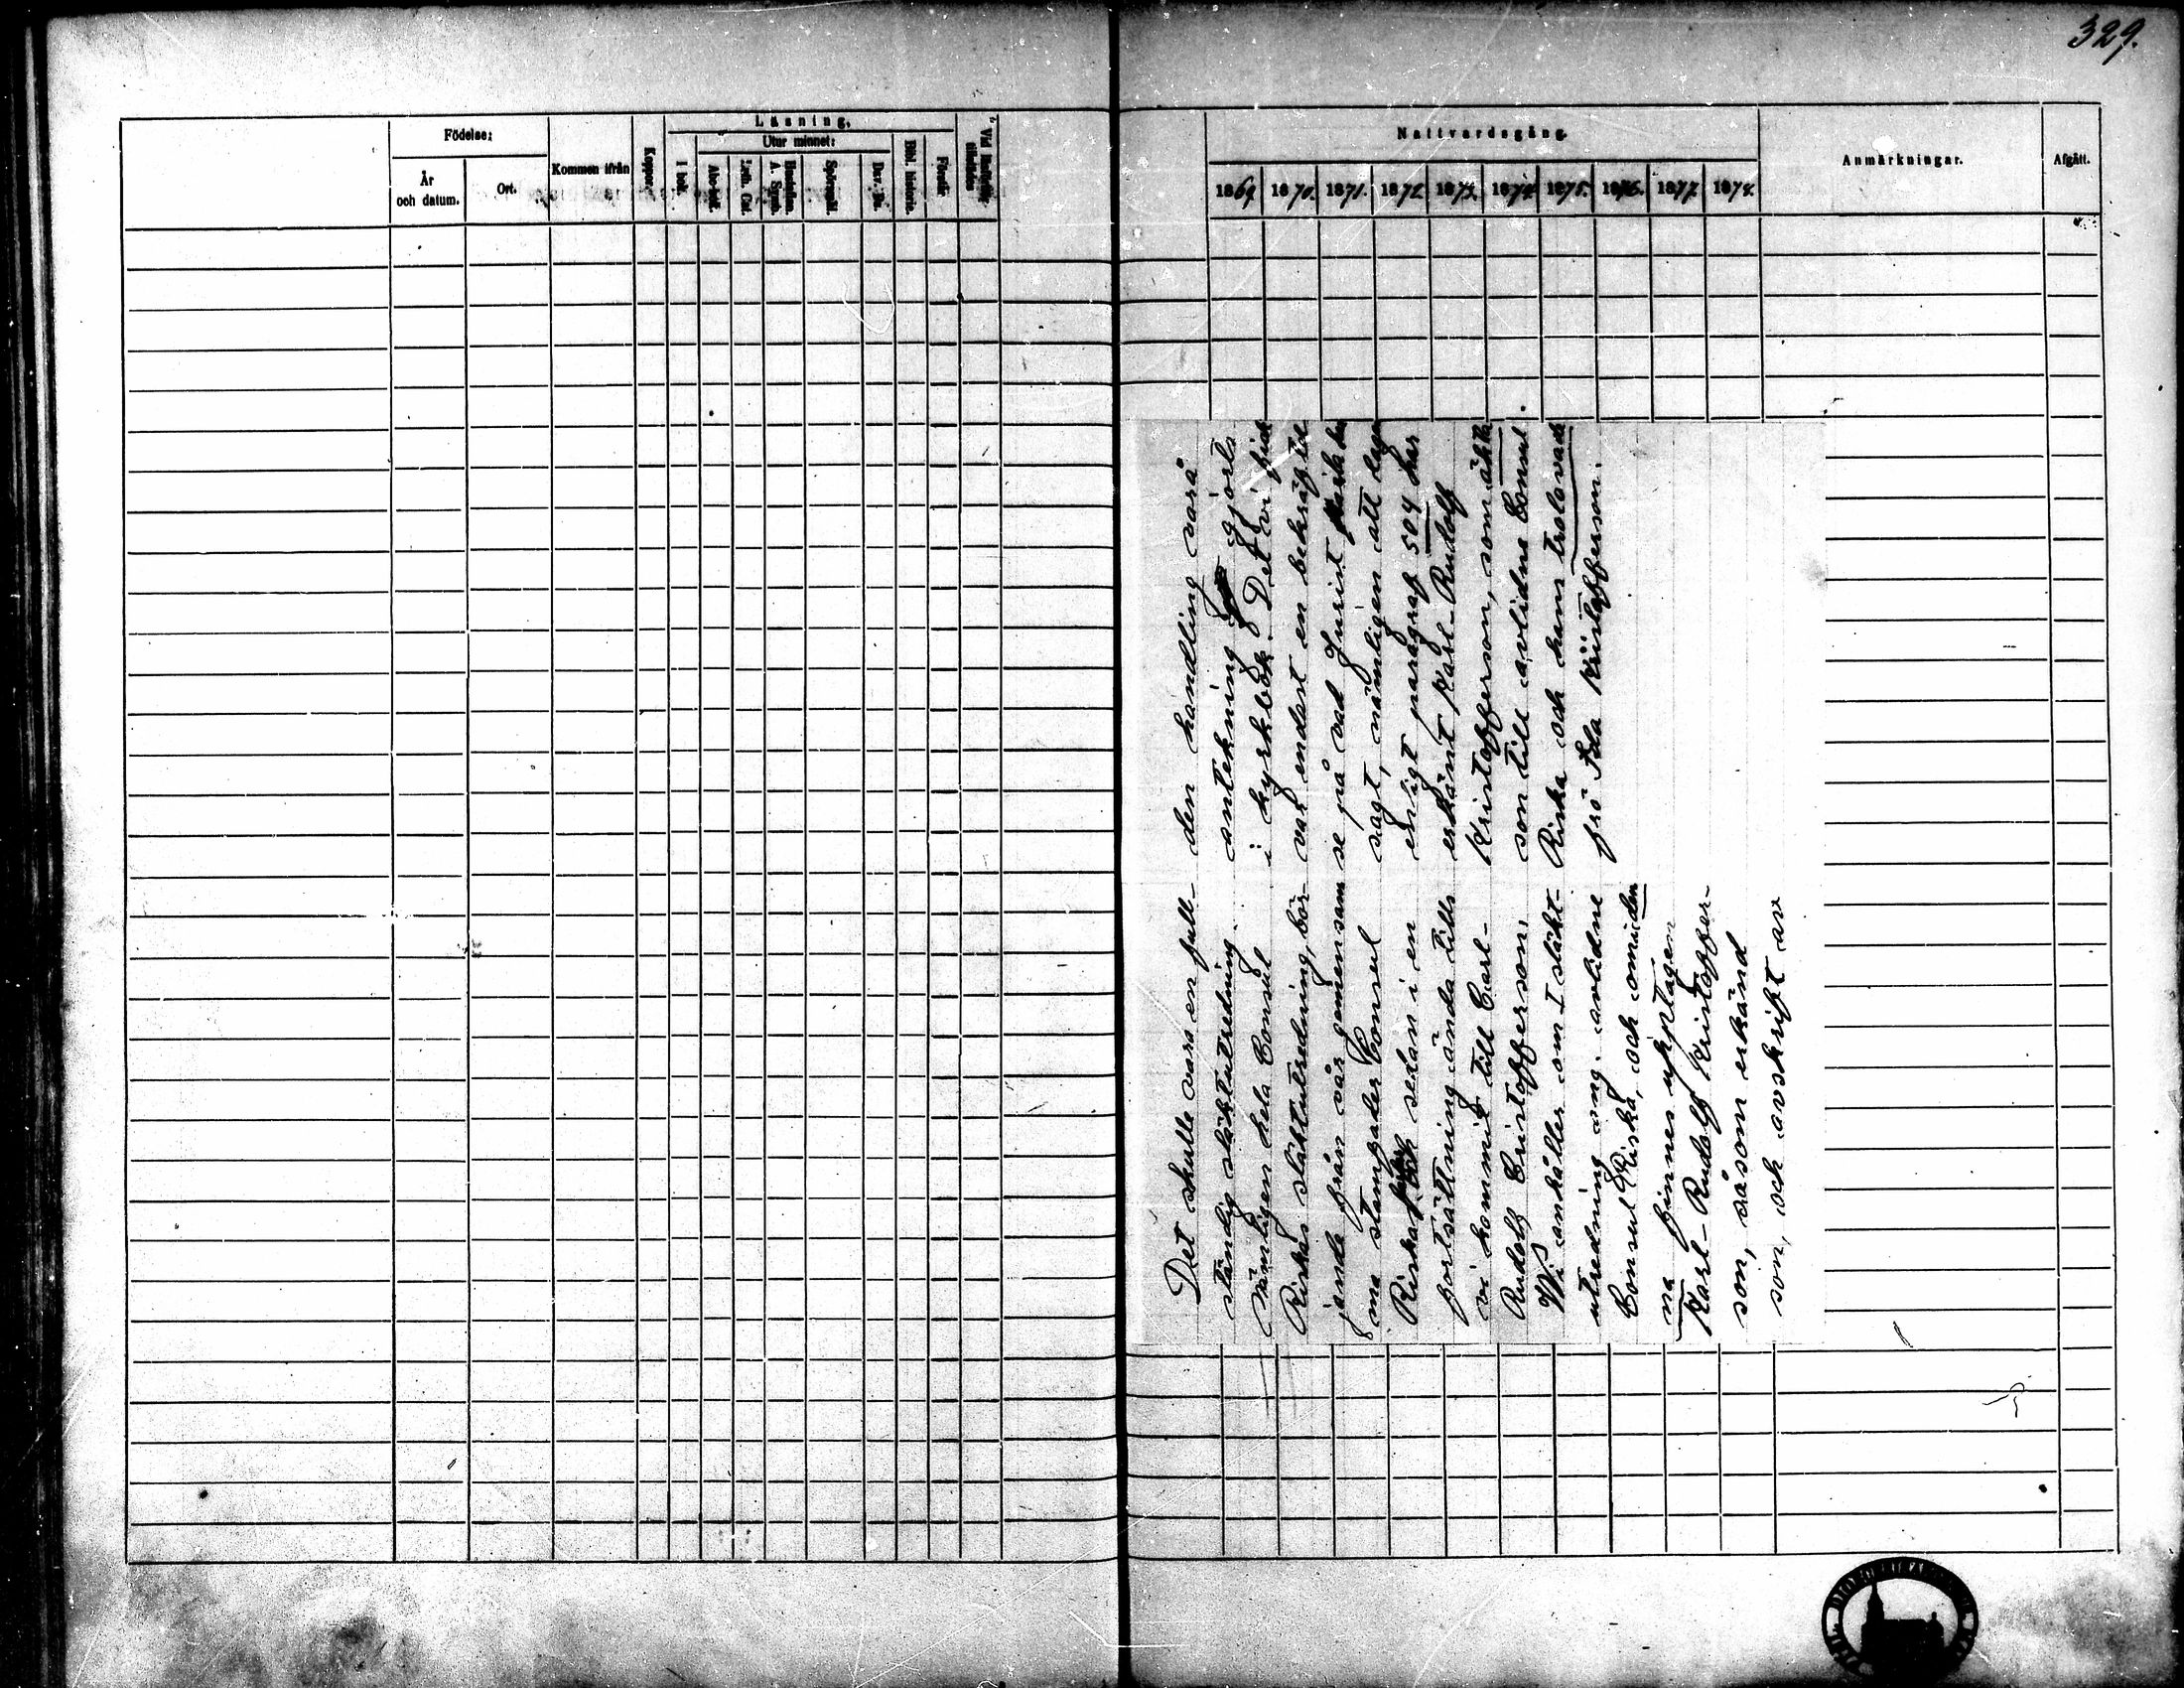 329.
Födelse:
År
och datum.
Ort.
Kommen ifrån
Koppor.
Läsning.
I bok.
Utur minnet:
Abc-bok.
Luth. Cat.
Hustaflan.
A. Symb.
Spörsmål.
Dav. Ps.
Bibl. historie.
Förstår.
Nattvardsgång.
1869.
1870.
1871.
1872
1873.
1874
1875.
1876.
1877.
1878.
Anmärkningar.
Afgått.
Det skulle vara en full-
ständig släktutredning.
Nämligen hela Consul
Riskas släktutredning, bör-
jande från vår gemensam
ma stamfader Consul
Riska sedan i en
fortsättning ända tills
vi kommit till Carl-
Rudolf Cristofferson.
Vi anhåller om I släkt-
utredning ang. avlidne
Consul Riska, och om i den
na finnes upptagen
Karl-Rudolf Kristoffer-
son, såsom erkänd
son, och avskrift av
den handling varå
antekning gjorts
i kyrkbok. Det vi
var endast en
se på vad Jurist
sagt, nämligen att
enligt paragraf 504 har
erkänt Karl-Rudolf
Kristofferson, som
son till avlidne Consul
Riska och hans trolovade
frö Ida Kristofferson.